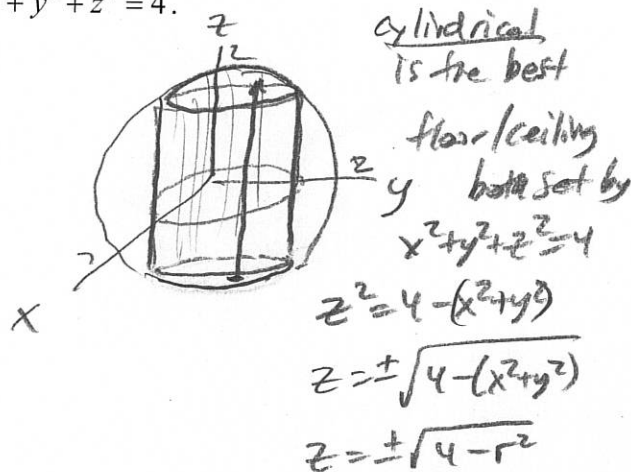 + y + z = 4.
z
2
2
y
2
x
cylindrical
is the best
floor/ceiling
both set by
x²+y²+z²=4
z²=4-(x²+y²)
z=±√4-(x²+y²)
z=±√4-r²